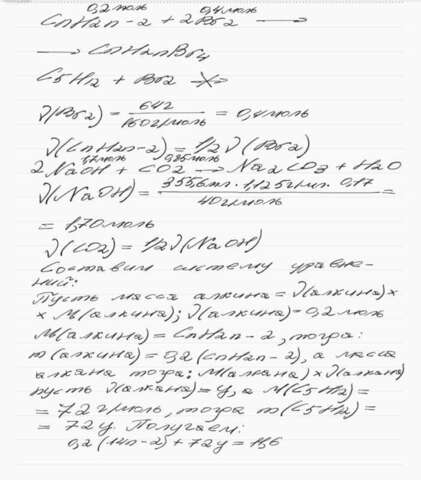 0,2моль 0,4моль
CnH2n-2 + 2Br2 →
→ CnH2nBr4
C5H12 + Br2 ↛
ν(Br2) = 64г / 160г/моль = 0,4моль
ν(CnH2n-2) = 1/2 ν(Br2)
1,7моль 0,85моль
2NaOH + CO2 → Na2CO3 + H2O
ν(NaOH) = 355,6мл · 1,125г/мл · 0,17 / 40г/моль =
= 1,70моль
ν(CO2) = 1/2 ν(NaOH)
Составим систему уравне-
ний:
Пусть масса алкина = ν(алкина) ×
× M(алкина); ν(алкина) = 0,2моль
M(алкина) = CnH2n-2, тогда:
m(алкина) = 0,2(CnH2n-2), а масса
алкана тогда: M(алкана) × ν(алкана)
пусть ν(алкана) = y, а M(C5H12) =
= 72г/моль, тогда m(C5H12) =
= 72y. Получаем:
0,2(14n-2) + 72y = 11,6